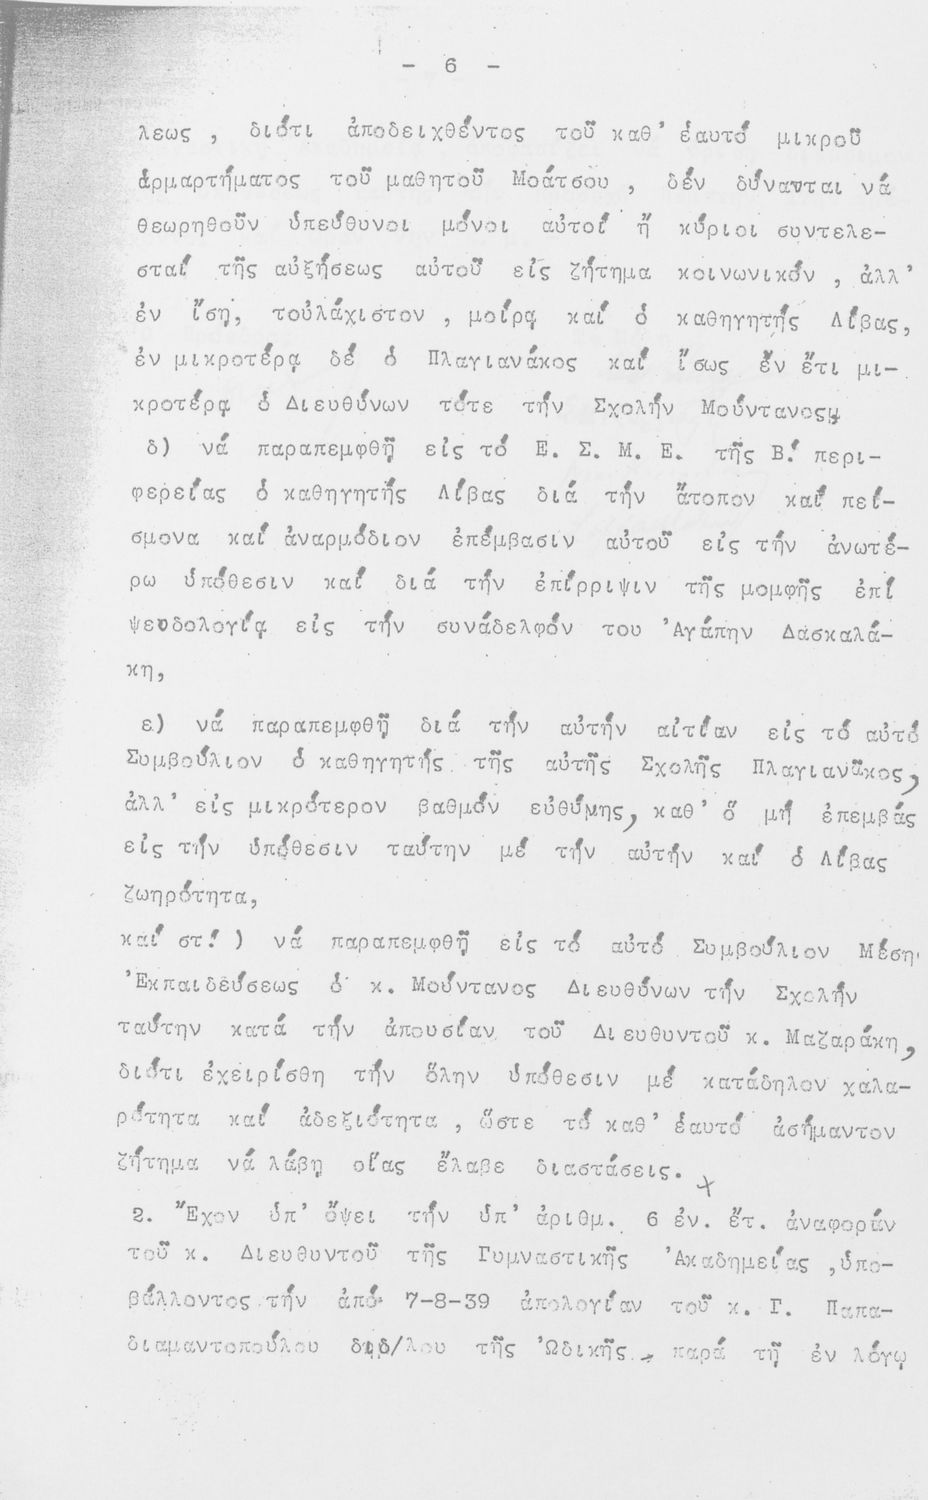 - 6 -
λεως , διότι ἀποδειχθέντος τοῦ καθ' ἑαυτό μικροῦ
ἁρμαρτήματος τοῦ μαθητοῦ Μοάτσου , δέν δύνανται νά
θεωρηθοῦν ὑπεύθυνοι μόνοι αὐτοί ἤ κύριοι συντελε-
σταί τῆς αὐξήσεως αὐτοῦ εἰς ζήτημα κοινωνικόν , ἀλλ'
ἐν ἴσῃ, τοὐλάχιστον , μοίρᾳ καί ὁ καθηγητής Λίβας,
ἐν μικροτέρᾳ δέ ὁ Πλαγιανάκος καί ἴσως ἐν ἔτι μι-
κροτέρᾳ ὁ Διευθύνων τότε τήν Σχολήν Μούντανος,
δ) νά παραπεμφθῇ εἰς τό Ε. Σ. Μ. Ε. τῆς Β.' περι-
φερείας ὁ καθηγητής Λίβας διά τήν ἄτοπον καί πεί-
σμονα καί ἀναρμόδιον ἐπέμβασιν αὐτοῦ εἰς τήν ἀνωτέ-
ρω ὑπόθεσιν καί διά τήν ἐπίρριψιν τῆς μομφῆς ἐπί
ψευδολογίᾳ εἰς τήν συνάδελφόν του 'Αγάπην Δασκαλά-
κη,
ε) νά παραπεμφθῇ διά τήν αὐτήν αἰτίαν εἰς τό αὐτό
Συμβούλιον ὁ καθηγητής τῆς αὐτῆς Σχολῆς Πλαγιανᾶκος,
ἀλλ' εἰς μικρότερον βαθμόν εὐθύνης, καθ' ὅ μή ἐπεμβάς
εἰς τήν ὑπόθεσιν ταύτην μέ τήν αὐτήν καί ὁ Λίβας
ζωηρότητα,
καί στ.' ) νά παραπεμφθῇ εἰς τό αὐτό Συμβούλιον Μέση
'Εκπαιδεύσεως ὁ κ. Μούντανος Διευθύνων τήν Σχολήν
ταύτην κατά τήν ἀπουσίαν τοῦ Διευθυντοῦ κ. Μαζαράκη,
διότι ἐχειρίσθη τήν ὅλην ὑπόθεσιν μέ κατάδηλον χαλα-
ρότητα καί ἀδεξιότητα , ὥστε τό καθ' ἑαυτό ἀσήμαντον
ζήτημα νά λάβῃ οἵας ἔλαβε διαστάσεις.
2. Ἔχον ὑπ' ὄψει τήν ὑπ' ἀριθμ. 6 ἐν. ἔτ. ἀναφοράν
τοῦ κ. Διευθυντοῦ τῆς Γυμναστικῆς 'Ακαδημείας ,ὑπο-
βάλλοντος τήν ἀπό 7-8-39 ἀπολογίαν τοῦ κ. Γ. Παπα-
διαμαντοπούλου διδ/λου τῆς 'Ωδικῆς παρά τῇ ἐν λόγῳ